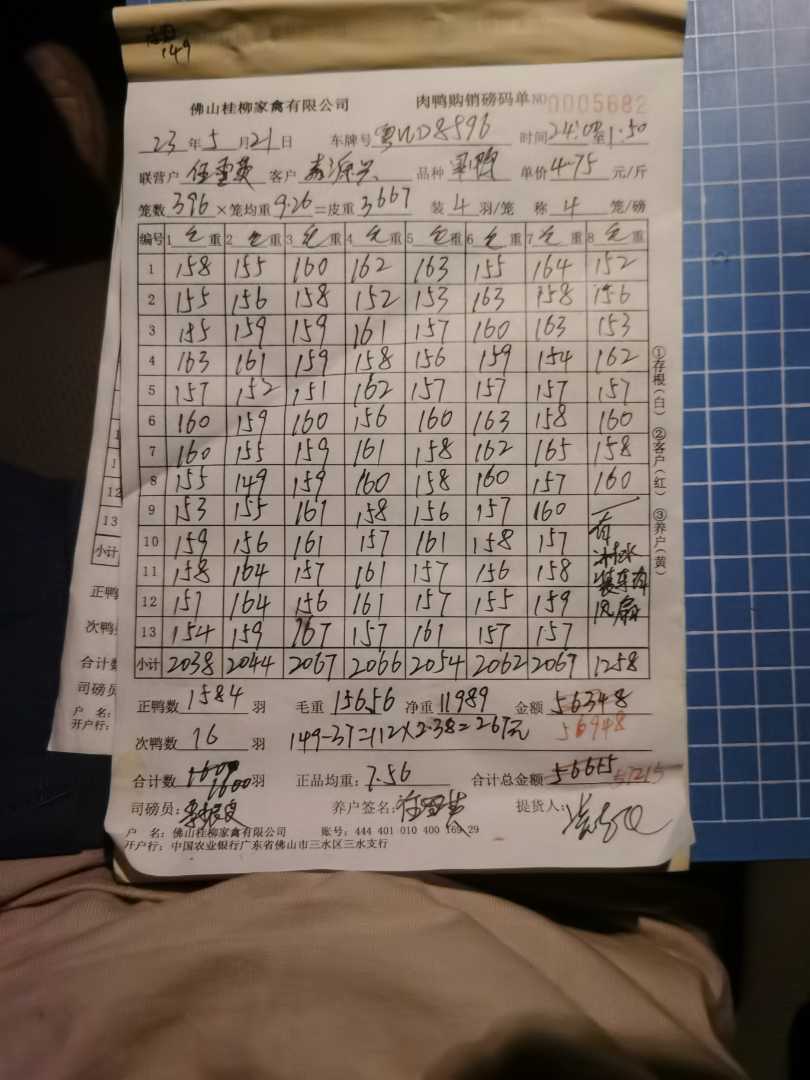 149
佛山桂柳家禽有限公司 肉鸭购销磅码单 NO 0005682
23 年 5 月 21 日 车牌号 时间 24:00 至 1:50
联营户 客户 品种 单价 4.75 元/斤
笼数 396 ×笼均重 9.26 =皮重 3667 装 4 羽/笼 称 4 笼/磅
编号 1 毛 重 2 毛 重 3 毛 重 4 毛 重 5 毛 重 6 毛 重 7 毛 重 8 毛 重
1 158 155 160 162 163 155 164 152
2 155 156 158 152 153 163 158 156
3 155 159 159 161 157 160 163 153
4 163 161 159 158 156 159 154 162
5 157 152 151 162 157 157 157 157
6 160 159 160 156 160 163 158 160
7 160 155 159 161 158 162 165 158
8 155 149 159 160 158 160 157 160
9 153 155 161 158 156 157 160
10 159 156 161 157 161 158 157
11 158 164 157 161 157 156 158
12 157 164 156 161 157 155 159
13 154 159 167 157 161 157 157
有
冲水
装车有
风扇
小计 2038 2044 2067 2066 2054 2062 2067 1258
①存根(白) ②客户(红) ③养户(黄)
正鸭数 1584 羽 毛重 15656 净重 11989 金额 56348
56948
次鸭数 16 羽 149-37=112×2.38=267元
合计数 1600 羽 正品均重: 7.56 合计总金额 56615 57215
司磅员: 养户签名: 提货人:
户 名: 佛山桂柳家禽有限公司 账号: 444 401 010 400 169 29
开户行: 中国农业银行广东省佛山市三水区三水支行
12
13
小计
正鸭
次鸭
合计数
司磅员
户 名:
开户行: